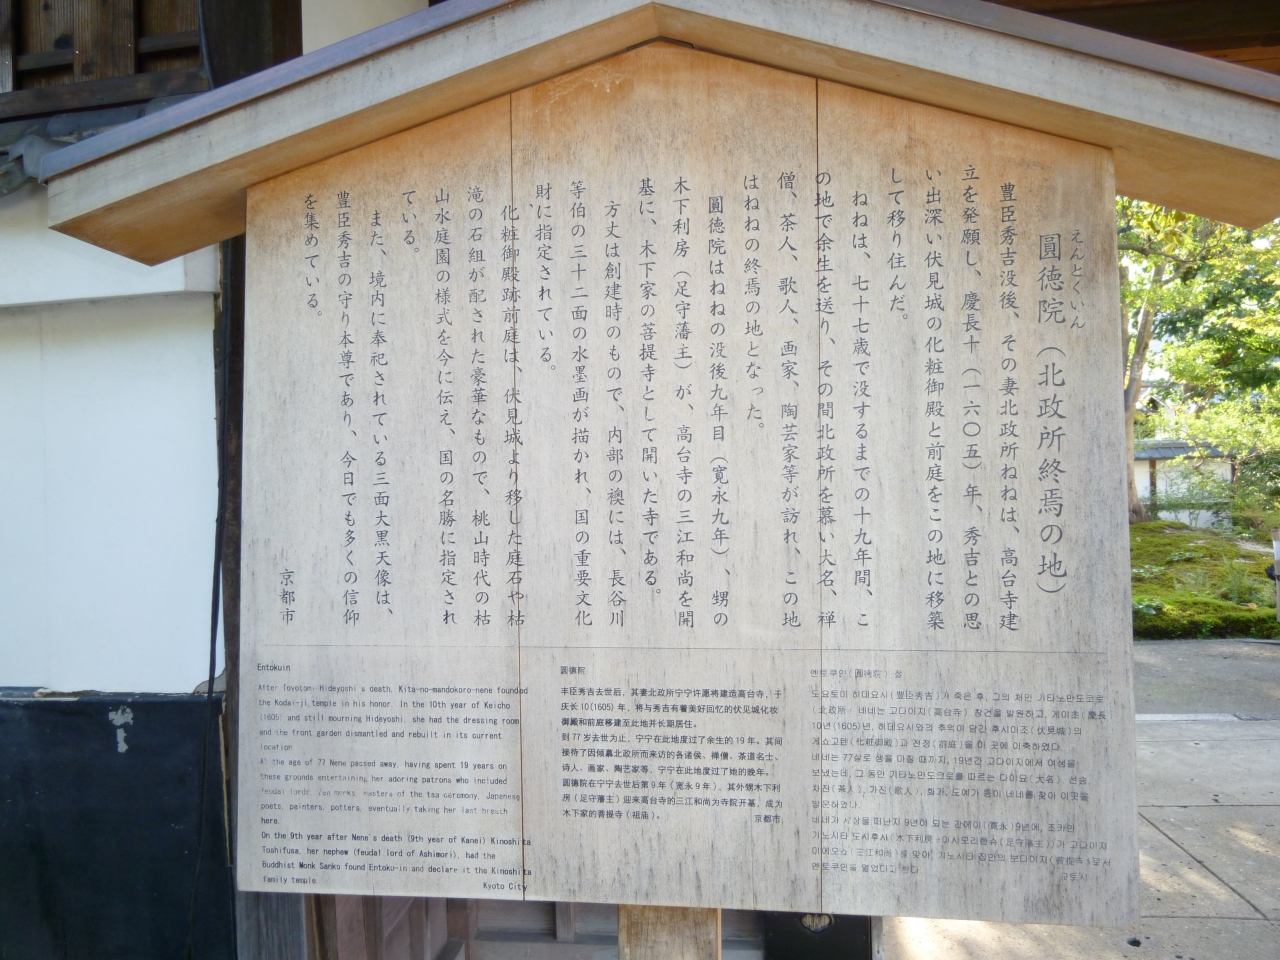 えんとくいん
圓徳院（北政所終焉の地）
豊臣秀吉没後、その妻北政所ねねは、高台寺建
立を発願し、慶長十（一六〇五）年、秀吉との思
い出深い伏見城の化粧御殿と前庭をこの地に移築
して移り住んだ。
ねねは、七十七歳で没するまでの十九年間、こ
の地で余生を送り、その間北政所を慕い大名、禅
僧、茶人、歌人、画家、陶芸家等が訪れ、この地
はねねの終焉の地となった。
圓徳院はねねの没後九年目（寛永九年）、甥の
木下利房（足守藩主）が、高台寺の三江和尚を開
基に、木下家の菩提寺として開いた寺である。
方丈は創建時のもので、内部の襖には、長谷川
等伯の三十二面の水墨画が描かれ、国の重要文化
財に指定されている。
化粧御殿跡前庭は、伏見城より移した庭石や枯
滝の石組が配された豪華なもので、桃山時代の枯
山水庭園の様式を今に伝え、国の名勝に指定され
ている。
また、境内に奉祀されている三面大黒天像は、
豊臣秀吉の守り本尊であり、今日でも多くの信仰
を集めている。
京都市
Entokuin
After Toyotomi Hideyoshi's death, Kita-no-mandokoro-nene founded
the Kodai-ji temple in his honor. In the 10th year of Keicho
(1605) and still mourning Hideyoshi, she had the dressing room
and the front garden dismantled and rebuilt in its current
location
At the age of 77 Nene passed away, having spent 19 years on
these grounds entertaining her adoring patrons who included
feudal lords, Zen monks, masters of the tea ceremony, Japanese
poets, painters, potters, eventually taking her last breath
here.
On the 9th year after Nene's death (9th year of Kanei) Kinoshita
Toshifusa, her nephew (feudal lord of Ashimori), had the
Buddhist Monk Sanko found Entoku-in and declare it the Kinoshita
family temple.
Kyoto City
圆德院
丰臣秀吉去世后，其妻北政所宁宁许愿将建造高台寺，于
庆长 10(1605) 年，将与秀吉有着美好回忆的伏见城化妆
御殿和前庭移建至此地并长期居住。
到 77 岁去世为止，宁宁在此地度过了余生的 19 年。其间
接待了因倾慕北政所而来访的各诸侯、禅僧、茶道名士、
诗人、画家、陶艺家等，宁宁在此地度过了她的晚年。
圆德院在宁宁去世后第 9 年（宽永 9 年），其外甥木下利
房（足守藩主）迎来高台寺的三江和尚为寺院开基，成为
木下家的菩提寺（祖庙）。
京都市
엔토쿠인（圓徳院）
도요토미 히데요시（豊臣秀吉）가 죽은 후, 그의 처인 기타노만도코로
（北政所） 네네는 고다이지（高台寺） 창건을 발원하고, 게이초（慶長）
10년(1605)년, 히데요시와의 추억이 담긴 후시미조（伏見城）의
게쇼고텐（化粧御殿）과 전정（前庭）을 이 곳에 이축하였다.
네네는 77살로 생을 마칠 때까지, 19년간 고다이지에서 여생을
보냈는데, 그 동안 기타노만도코로를 따르는 다이묘（大名） 선승,
차진（茶人）, 가진（歌人）, 화가, 도예가 등이 네네를 찾아 이곳을
방문하였다.
네네가 세상을 떠난지 9년이 되는 간에이（寛永）9년에, 조카인
기노시타 도시후사（木下利房
교토시